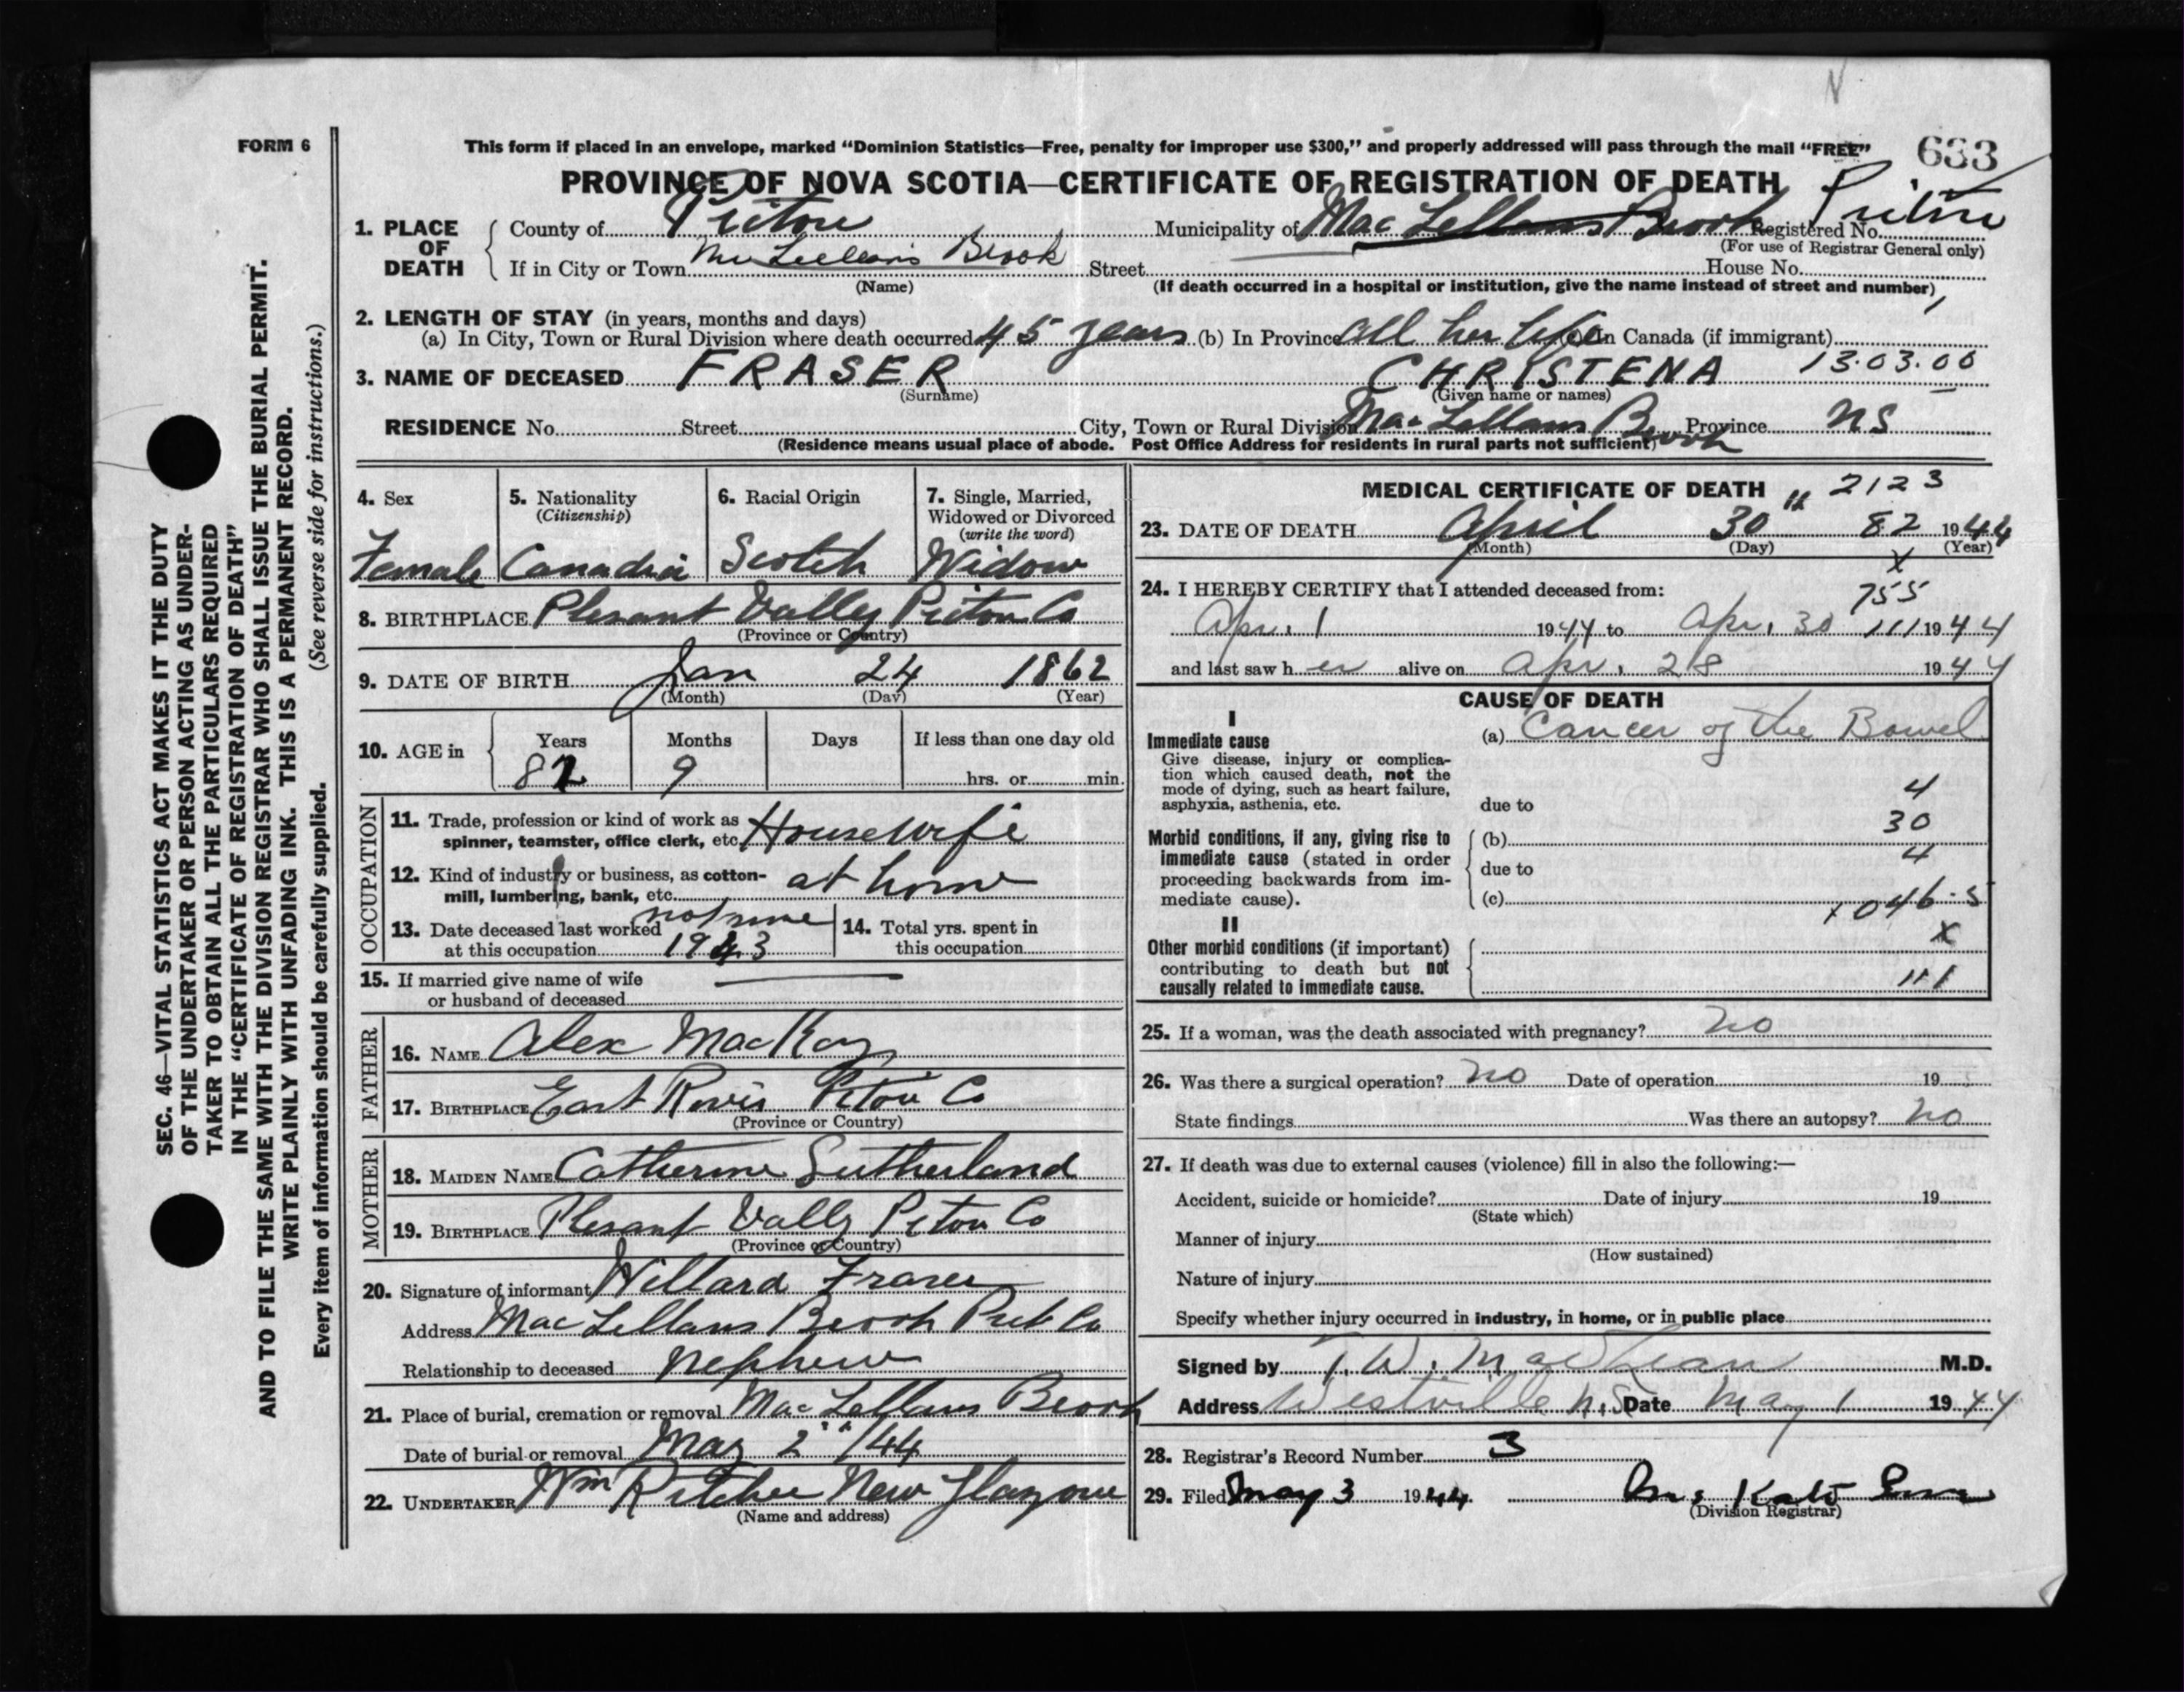 633
FORM 6
This form if placed in an envelope, marked "Dominion Statistics—Free, penalty for improper use $300," and properly addressed will pass through the mail "FREE"
PROVINCE OF NOVA SCOTIA—CERTIFICATE OF REGISTRATION OF DEATH
1. PLACE OF DEATH
County of Pictou Municipality of Mac Lellans Brook Registered No.
(For use of Registrar General only)
If in City or Town McLellans Brook Street House No.
(Name) (If death occurred in a hospital or institution, give the name instead of street and number)
2. LENGTH OF STAY (in years, months and days)
(a) In City, Town or Rural Division where death occurred 45 years (b) In Province all her life (c) In Canada (if immigrant)
3. NAME OF DECEASED FRASER CHRISTENA 13.03.00
(Surname) (Given name or names)
RESIDENCE No. Street City, Town or Rural Division Mac Lellans Brook Province NS
(Residence means usual place of abode. Post Office Address for residents in rural parts not sufficient)
4. Sex Female
5. Nationality (Citizenship) Canadia
6. Racial Origin Scotch
7. Single, Married, Widowed or Divorced (write the word) Widow
8. BIRTHPLACE Plesant Vally Picton Co
(Province or Country)
9. DATE OF BIRTH Jan 24 1862
(Month) (Day) (Year)
10. AGE in Years Months Days If less than one day old
82 9 hrs. or min.
OCCUPATION
11. Trade, profession or kind of work as spinner, teamster, office clerk, etc. Housewife
12. Kind of industry or business, as cotton-mill, lumbering, bank, etc. at home
13. Date deceased last worked at this occupation 1943
14. Total yrs. spent in this occupation
15. If married give name of wife or husband of deceased
FATHER
16. NAME Alex MacKay
17. BIRTHPLACE East River Pictou Co
(Province or Country)
MOTHER
18. MAIDEN NAME Catherine Sutherland
19. BIRTHPLACE Plesant Vally Picton Co
(Province or Country)
20. Signature of informant Willard Fraser
Address Mac Lellans Brook Pict Co
Relationship to deceased Nephew
21. Place of burial, cremation or removal Mac Lellans Brook
Date of burial or removal May 2"/44
22. UNDERTAKER Wm Ritchie New Glasgow
(Name and address)
MEDICAL CERTIFICATE OF DEATH 2123
23. DATE OF DEATH April 30" 82 1944
(Month) (Day) (Year)
x
24. I HEREBY CERTIFY that I attended deceased from: 755
Apr. 1 1944 to Apr. 30 111 1944
and last saw her alive on Apr. 28 1944
CAUSE OF DEATH
I
Immediate cause
Give disease, injury or complication which caused death, not the mode of dying, such as heart failure, asphyxia, asthenia, etc.
(a) Cancer of the Bowel
due to 4
30
Morbid conditions, if any, giving rise to immediate cause (stated in order proceeding backwards from immediate cause).
(b)
due to 4
(c) x 046.5
II
Other morbid conditions (if important) contributing to death but not causally related to immediate cause.
x
111
25. If a woman, was the death associated with pregnancy? no
26. Was there a surgical operation? no Date of operation 19
State findings Was there an autopsy? no
27. If death was due to external causes (violence) fill in also the following:—
Accident, suicide or homicide? Date of injury 19
(State which)
Manner of injury
(How sustained)
Nature of injury
Specify whether injury occurred in industry, in home, or in public place
Signed by T. W. MacLean M.D.
Address Westville N.S. Date May 1 1944
28. Registrar's Record Number 3
29. Filed May 3 1944
(Division Registrar)
SEC. 46—VITAL STATISTICS ACT MAKES IT THE DUTY
OF THE UNDERTAKER OR PERSON ACTING AS UNDER-
TAKER TO OBTAIN ALL THE PARTICULARS REQUIRED
IN THE "CERTIFICATE OF REGISTRATION OF DEATH"
AND TO FILE THE SAME WITH THE DIVISION REGISTRAR WHO SHALL ISSUE THE BURIAL PERMIT.
WRITE PLAINLY WITH UNFADING INK. THIS IS A PERMANENT RECORD.
Every item of information should be carefully supplied. (See reverse side for instructions.)